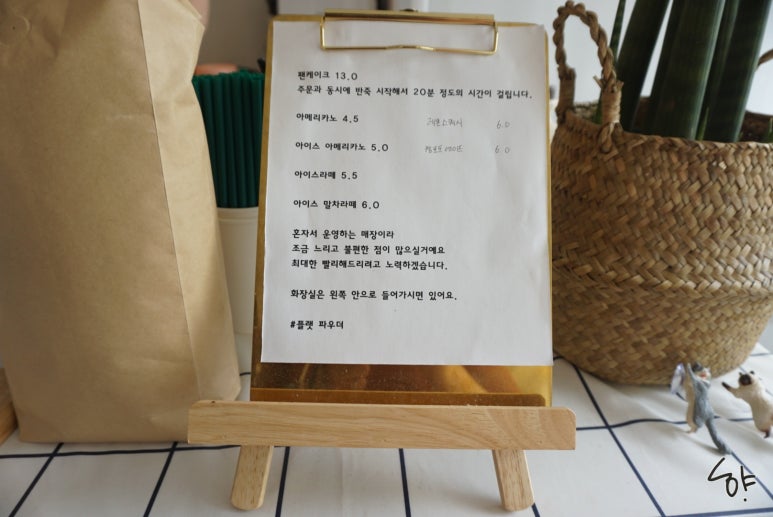 팬케이크 13.0
주문과 동시에 반죽 시작해서 20분 정도의 시간이 걸립니다.
아메리카노 4.5 레몬스쿼시 6.0
아이스 아메리카노 5.0 6.0
아이스라떼 5.5
아이스 말차라떼 6.0
혼자서 운영하는 매장이라
조금 느리고 불편한 점이 많으실거예요
최대한 빨리해드리려고 노력하겠습니다.
화장실은 왼쪽 안으로 들어가시면 있어요.
#플랫 파우더